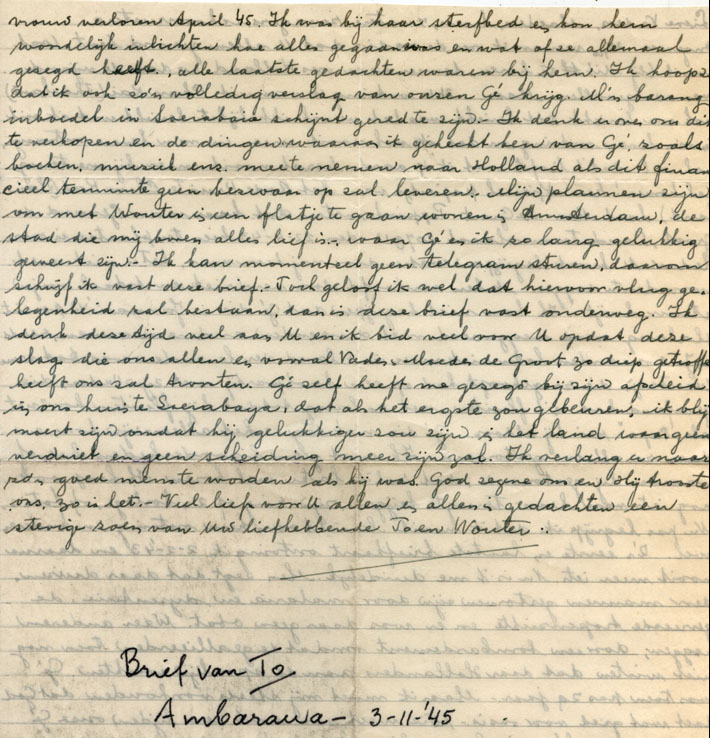 vrouw verloren April 45. Ik was bij haar sterfbed en kon hem
woordelijk inlichten hoe alles gegaan was en wat of ze allemaal
gezegd heeft, alle laatste gedachten waren bij hem. Ik hoop
dat ik ook zo'n volledig verslag van onzen Gé krijg. M'n barang
inboedel in Soerabaia schijnt gered te zijn.- Ik denk er over om dit
te verkopen en de dingen waaraan ik gehecht ben van Gé zoals
boeken, muziek enz. mee te nemen naar Holland als dit finan-
cieel tenminste geen bezwaar op zal leveren. Mijn plannen zijn
om met Wouter in een flatje te gaan wonen in Amsterdam, de
stad die mij boven alles lief is, waar Gé en ik zo lang gelukkig
geweest zijn.- Ik kan momenteel geen telegram sturen, daarom
schrijf ik vast deze brief.- Toch geloof ik wel dat hiervoor vlug ge-
legenheid zal bestaan, dan is deze brief vast onderweg. Ik
denk deze tijd veel aan U en ik bid veel voor U opdat deze
slag die ons allen en vooral Vader, Moeder de Groot zo diep getroffe
heeft ons zal troosten. Gé self heeft me gezegd bij zijn afscheid
in ons huis te Soerabaya, dat als het ergste zou gebeuren, ik blij
moest zijn omdat hij gelukkiger zou zijn in het land waar geen
verdriet en geen scheiding meer zijn zal. Ik verlang er naar
zo'n goed mens te worden als hij was. God zegene ons en Hij trooste
ons, zo is het.- Veel liefs voor U allen en allen in gedachten een
stevige zoen van Uw liefhebbende To en Wouter.
Brief van To
Ambarawa - 3-11-'45